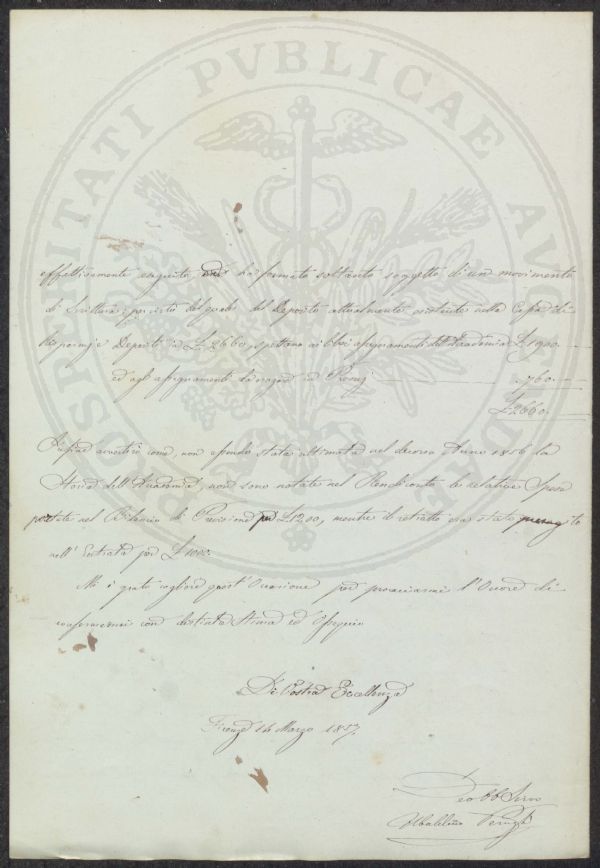 PROSPERITATI PVBLICAE AVGENDAE
effettivamente eseguita, ha formato soltanto soggetto di un movimento
di Scrittura; per cui del Deposito attualmente esistente nella Cassa di
Deposito in £ 2660, spettano assegnamenti dell'Accademia £ 1900.
ed agli assegnamenti 760.
£ 2660.
avvertire come, non essendo stata ultimata nel decorso Anno 1856 la
Storia dell'Accademia, non sono notate nel Rendiconto le relative Spese
portate nel Bilancio di Previsione per £ 1200, mentre il retratto era stato
nell'Entrata per £ 1000.
Mi è grato cogliere quest'Occasione per procacciarmi l'Onore di
confermarmi con distinta Stima ed Ossequio
Di Vostra Eccellenza
Firenze 14 Marzo 1857.
Dev Obb Servo
Ubaldino Peruzzi